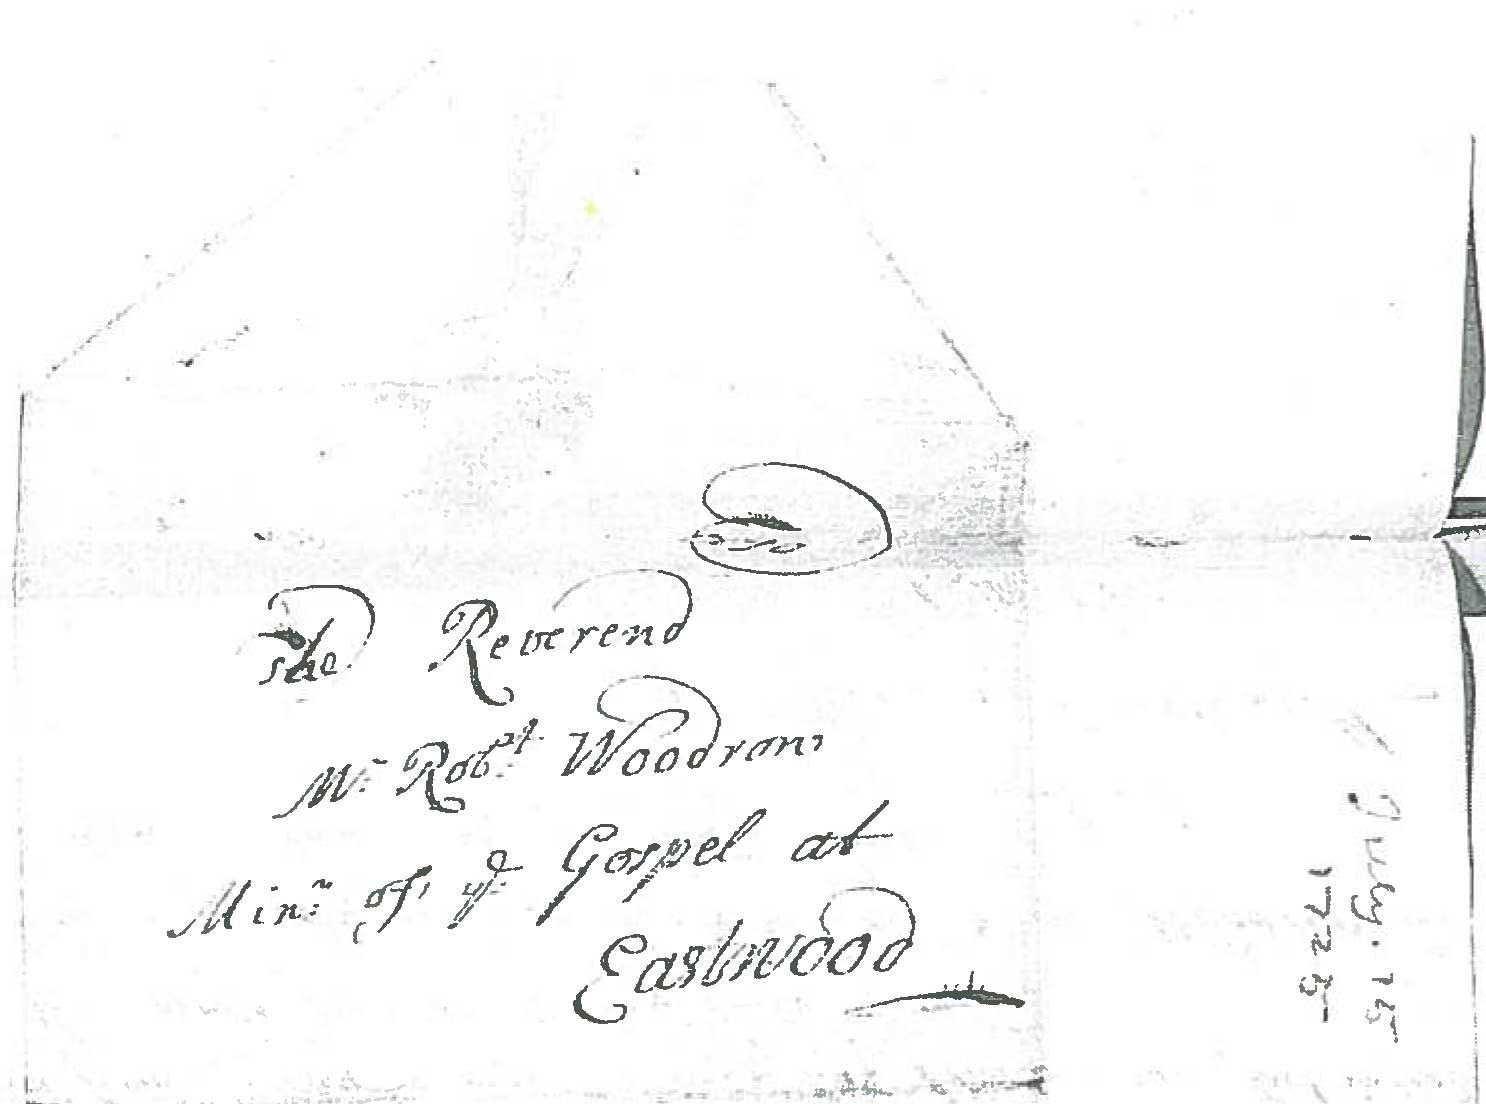 To
The Reverend
Mr Robt Woodrow
Minr of ye Gospel at
Eastwood
July. 15
1725